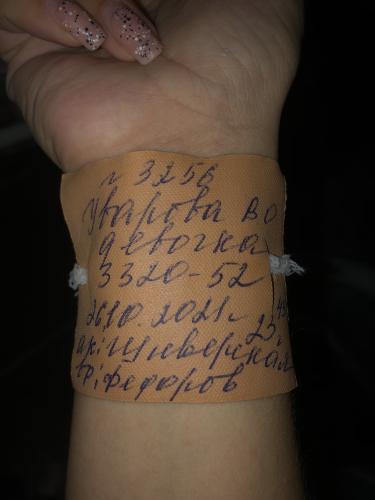 и 3256
Уварова ВО
девочка
3320-52
26.10.2021г 23,45
ак: Циверская
вр: Федоров